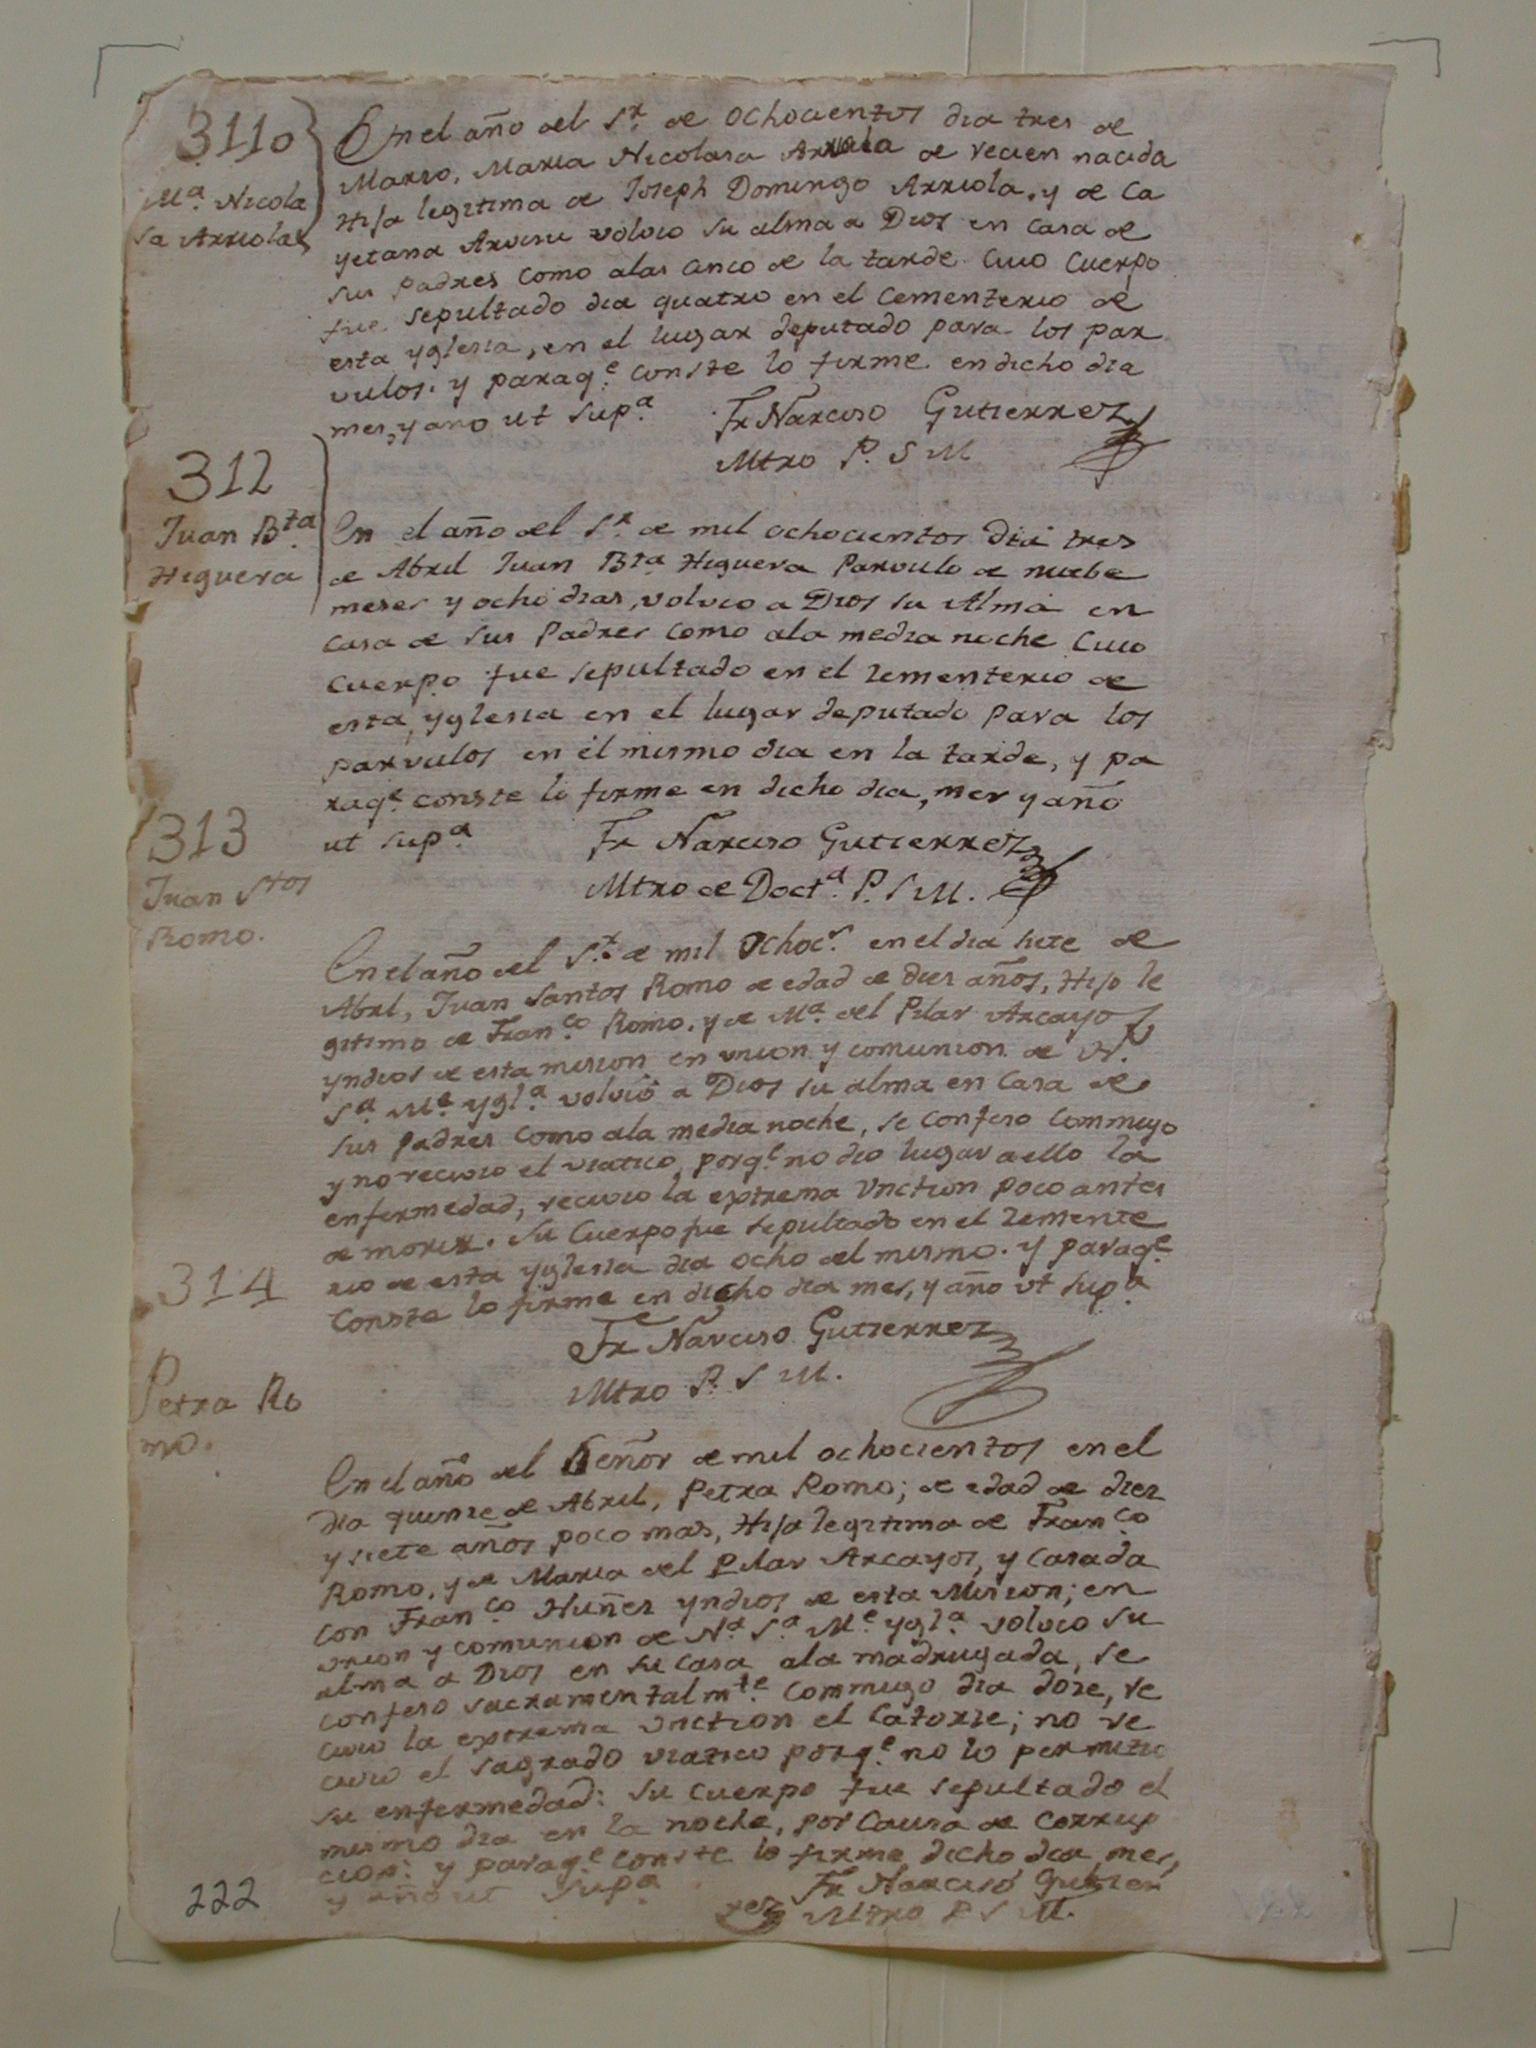 311o
Mᵃ. Nicola
sa Arriola
En el año del Sʳ. de ochocientos dia tres de
Marso, Maria Nicolasa Arriola de recien nacida
Hija legitima de Joseph Domingo Arriola, y de Ca
yetana volvio su alma a Dios en casa de
sus padres como a las cinco de la tarde Cuio Cuerpo
fue sepultado dia quatro en el Cementerio de
esta yglesia, en el lugar deputado para los par
vulos. y paraqᵉ. conste lo firme en dicho dia
mes, y ano ut supᵃ
Fr Narciso Gutierrez
Mtro P. S M
312
Juan Bᵗᵃ.
Higuera
En el año del Sʳ. de mil ochocientos dia tres
de Abril Juan Bᵗᵃ Higuera Parvulo de nuebe
meses y ocho dias, volvio a Dios su Alma en
casa de sus Padres como ala media noche Cuio
Cuerpo fue sepultado en el zementerio de
esta yglesia en el lugar deputado para los
parvulos en el mismo dia en la tarde, y pa
raqᵉ. conste lo firme en dicho dia, mes y año
ut supᵃ
Fr Narciso Gutierrez
Mtro de Doctᵃ. P. S M.
313
Juan Sᵗᵒˢ
Romo.
En el año del Sʳ. de mil ochocˢ. en el dia siete de
Abril, Juan Santos Romo de edad de dies años, Hijo le
gitimo de Franᶜᵒ Romo, y de Mᵃ. del Pilar Arcayos
yndios de esta mision en union y comunion de Nᵃ.
Sᵃ Mᵉ. yglᵃ volvió a Dios su alma en casa de
sus padres como ala media noche, se confeso commugo
y no recivio el viatico, porqᵉ. no dio lugar a ello la
enfermedad, recivio la extrema Unction poco antes
de morir. Su Cuerpo fue sepultado en el zemente
rio de esta yglesia dia ocho del mismo. y paraqᵉ
Conste lo firme en dicho dia mes, y año ut supᵃ
Fr Narciso Gutierrez
Mtro P. S M.
314
Petra Ro
mo.
En el año del Señor de mil ochocientos en el
dia quinze de Abril, Petra Romo; de edad de diez
y siete años poco mas, Hija legitima de Franᶜᵒ
Romo, y de Maria del Pilar Arcayos, y casada
con Franᶜᵒ Nuñez yndios de esta Mision; en
union y comunion de Nᵃ. Sᵃ Mᵉ yglᵃ. volvio su
alma a Dios en su casa ala madrugada, se
confeso sacramentalmᵗᵉ. commugo dia doze, re
civio la extrema unction el catorze; no re
civio el sagrado viatico porqᵉ. no lo permitio
su enfermedad: su cuerpo fue sepultado el
mismo dia en la noche, por causa de corrup
cion: y paraqᵉ conste lo firme dicho dia mes,
y año ut supᵃ
Fr Narcisó Gutier
rez Mtro P S M.
222